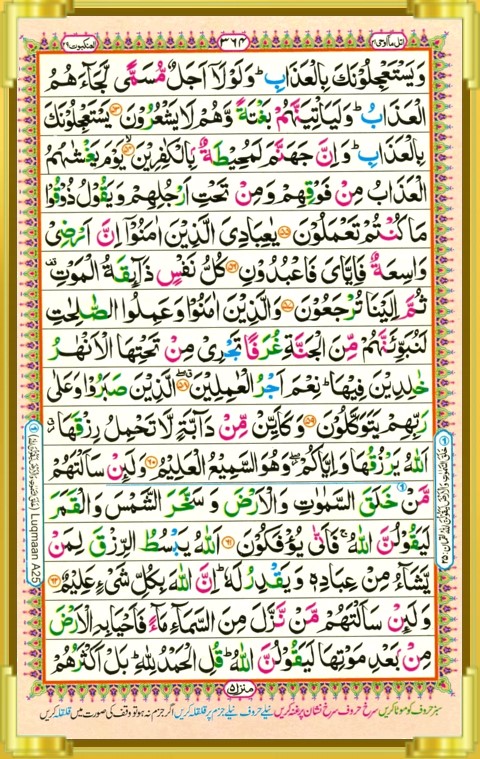 اتل ما اوحی ۲۱
۳۶۴
العنکبوت ۲۹
وَيَسْتَعْجِلُوْنَكَ بِالْعَذَابِ ؕ وَلَوْلَاۤ اَجَلٌ مُّسَمًّى لَّجَآءَهُمُ
الْعَذَابُ ؕ وَلَيَاْتِيَنَّهُمْ بَغْتَةً وَّهُمْ لَا يَشْعُرُوْنَ ۝۵۳ يَسْتَعْجِلُوْنَكَ
بِالْعَذَابِ ؕ وَاِنَّ جَهَنَّمَ لَمُحِيْطَةٌۢ بِالْكٰفِرِيْنَ ۝۵۴ يَوْمَ يَغْشٰىهُمُ
الْعَذَابُ مِنْ فَوْقِهِمْ وَمِنْ تَحْتِ اَرْجُلِهِمْ وَيَقُوْلُ ذُوْقُوْا
مَا كُنْتُمْ تَعْمَلُوْنَ ۝۵۵ يٰعِبَادِيَ الَّذِيْنَ اٰمَنُوْۤا اِنَّ اَرْضِيْ
وَاسِعَةٌ فَاِيَّايَ فَاعْبُدُوْنِ ۝۵۶ كُلُّ نَفْسٍ ذَآئِقَةُ الْمَوْتِ
ثُمَّ اِلَيْنَا تُرْجَعُوْنَ ۝۵۷ وَالَّذِيْنَ اٰمَنُوْا وَعَمِلُوا الصّٰلِحٰتِ
لَنُبَوِّئَنَّهُمْ مِّنَ الْجَنَّةِ غُرَفًا تَجْرِيْ مِنْ تَحْتِهَا الْاَنْهٰرُ
خٰلِدِيْنَ فِيْهَا ؕ نِعْمَ اَجْرُ الْعٰمِلِيْنَ ۝۵۸ الَّذِيْنَ صَبَرُوْا وَعَلٰى
رَبِّهِمْ يَتَوَكَّلُوْنَ ۝۵۹ وَكَاَيِّنْ مِّنْ دَآبَّةٍ لَّا تَحْمِلُ رِزْقَهَا ۖ
اَللّٰهُ يَرْزُقُهَا وَاِيَّاكُمْ ۖ وَهُوَ السَّمِيْعُ الْعَلِيْمُ ۝۶۰ وَلَئِنْ سَاَلْتَهُمْ
مَّنْ خَلَقَ السَّمٰوٰتِ وَالْاَرْضَ وَسَخَّرَ الشَّمْسَ وَالْقَمَرَ
لَيَقُوْلُنَّ اللّٰهُ ۚ فَاَنّٰى يُؤْفَكُوْنَ ۝۶۱ اَللّٰهُ يَبْسُطُ الرِّزْقَ لِمَنْ
يَّشَآءُ مِنْ عِبَادِهٖ وَيَقْدِرُ لَهٗ ؕ اِنَّ اللّٰهَ بِكُلِّ شَيْءٍ عَلِيْمٌ ۝۶۲
وَلَئِنْ سَاَلْتَهُمْ مَّنْ نَّزَّلَ مِنَ السَّمَآءِ مَآءً فَاَحْيَا بِهِ الْاَرْضَ
مِنْۢ بَعْدِ مَوْتِهَا لَيَقُوْلُنَّ اللّٰهُ ؕ قُلِ الْحَمْدُ لِلّٰهِ ؕ بَلْ اَكْثَرُهُمْ
منزل ۵
Luqmaan A25
سبز حروف کو موٹا کریں سرخ حروف سرخ نشان پر غنہ کریں نیلے حروف نیلے جزم پر قلقلہ کریں اگر جزم نہ ہو تو وقف کی صورت میں قلقلہ کریں